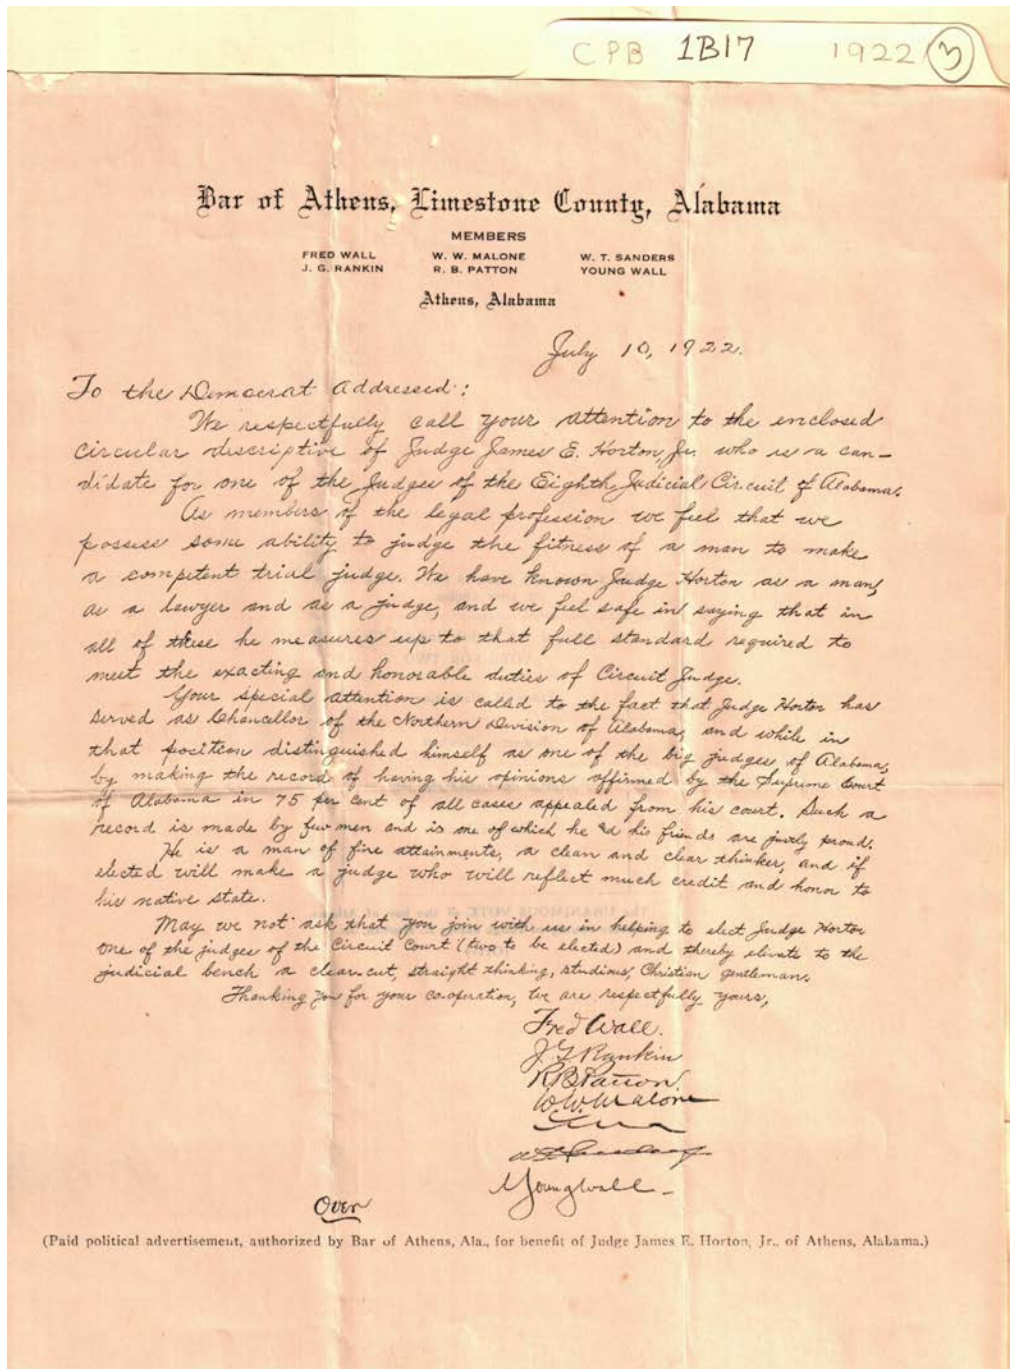 CPB 1B17 1922 3
Bar of Athens, Limestone County, Alabama
MEMBERS
FRED WALL W. W. MALONE W. T. SANDERS
J. G. RANKIN R. B. PATTON YOUNG WALL
Athens, Alabama
July 10, 1922.
To the Democrat Addressed:
We respectfully call your attention to the enclosed
circular descriptive of Judge James E. Horton, Jr. who is a can-
didate for one of the Judges of the Eighth Judicial Circuit of Alabama.
As members of the legal profession we feel that we
possess some ability to judge the fitness of a man to make
a competent trial judge. We have known Judge Horton as a man,
as a lawyer and as a judge, and we feel safe in saying that in
all of these he measures up to that full standard required to
meet the exacting and honorable duties of Circuit Judge.
Your special attention is called to the fact that Judge Horton has
served as Chancellor of the Northern Division of Alabama, and while in
that position distinguished himself as one of the big judges of Alabama,
by making the record of having his opinions affirmed by the Supreme Court
of Alabama in 75 per cent of all cases appealed from his court. Such a
record is made by few men and is one of which he & his friends are justly proud.
He is a man of fine attainments, a clean and clear thinker, and if
elected will make a judge who will reflect much credit and honor to
his native state.
May we not ask that you join with us in helping to elect Judge Horton
one of the judges of the Circuit Court (two to be elected) and thereby elevate to the
judicial bench a clear-cut, straight thinking, studious, Christian gentleman.
Thanking you for your co-operation, we are respectfully yours,
Fred Wall.
J. G. Rankin
R B Patton.
W. W. Malone
Young Wall
Over
(Paid political advertisement, authorized by Bar of Athens, Ala., for benefit of Judge James E. Horton, Jr., of Athens, Alabama.)